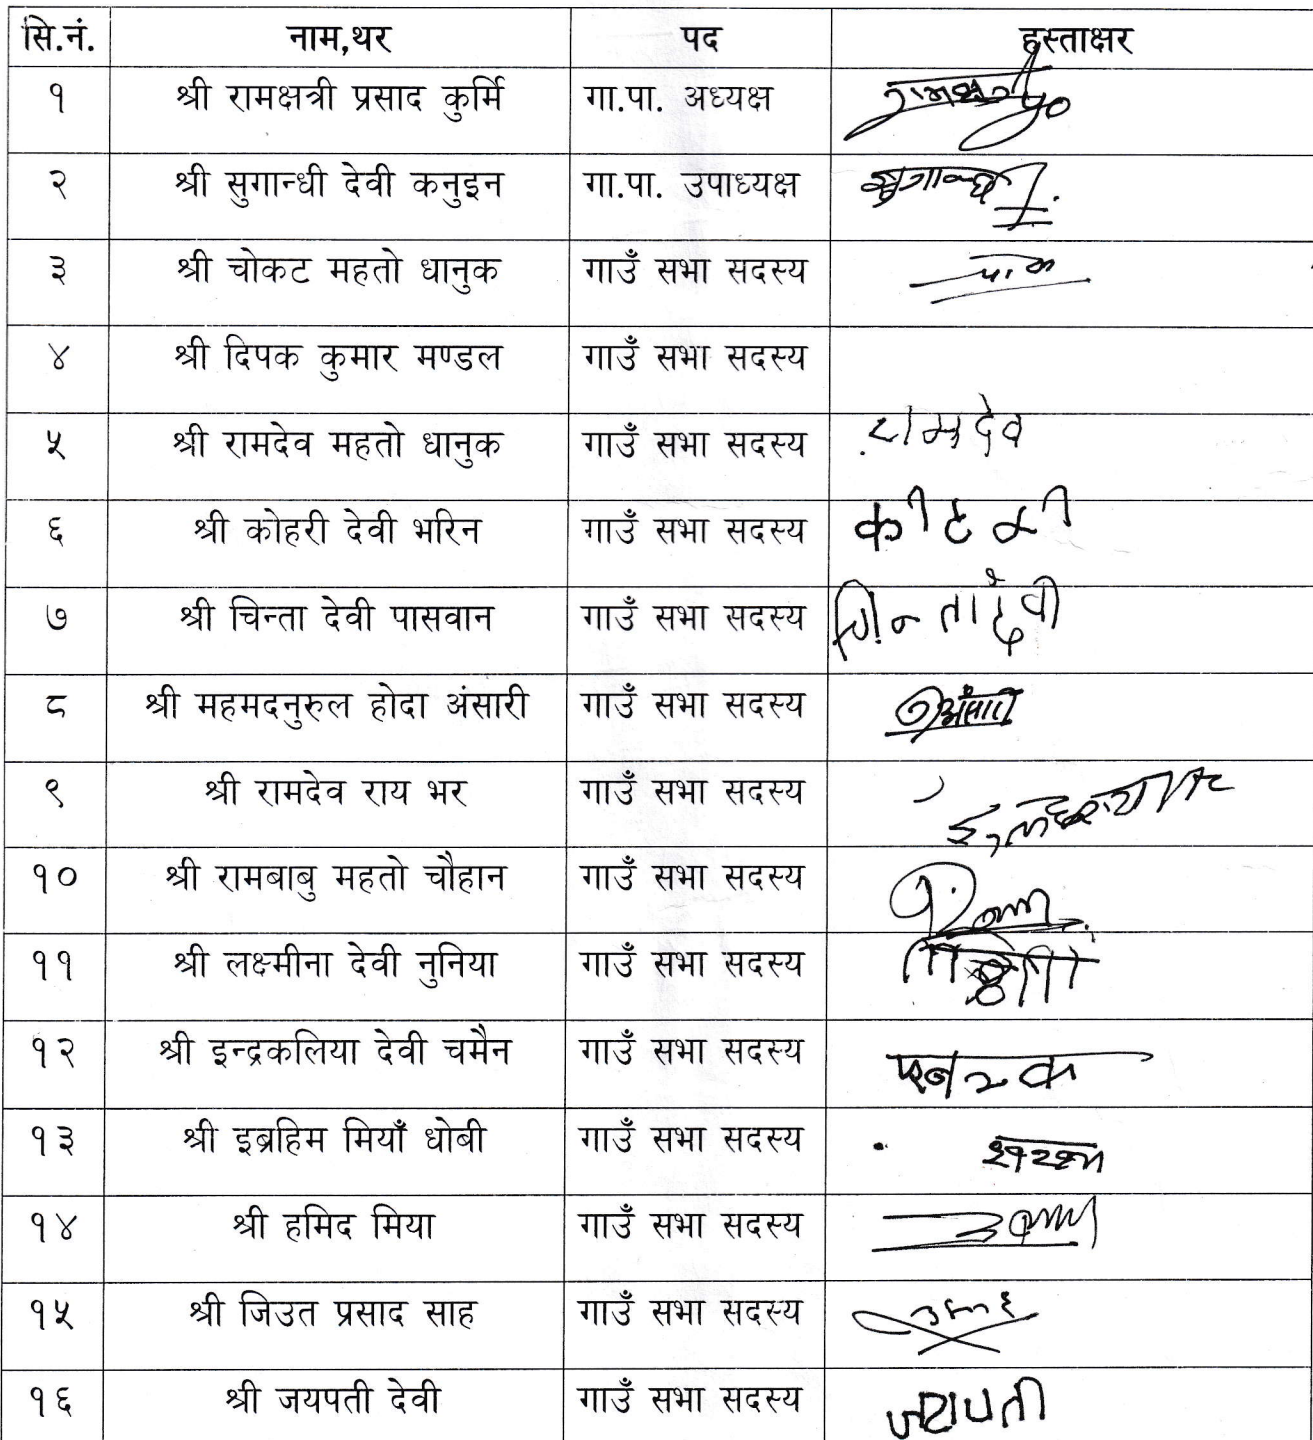 सि.नं. नाम,थर पद हस्ताक्षर
१ श्री रामक्षत्री प्रसाद कुर्मि गा.पा. अध्यक्ष
२ श्री सुगान्धी देवी कनुइन गा.पा. उपाध्यक्ष
३ श्री चोकट महतो धानुक गाउँ सभा सदस्य
४ श्री दिपक कुमार मण्डल गाउँ सभा सदस्य
५ श्री रामदेव महतो धानुक गाउँ सभा सदस्य रामदेव
६ श्री कोहरी देवी भरिन गाउँ सभा सदस्य
७ श्री चिन्ता देवी पासवान गाउँ सभा सदस्य चिन्तादेवी
८ श्री महमदनुरुल होदा अंसारी गाउँ सभा सदस्य
९ श्री रामदेव राय भर गाउँ सभा सदस्य
१० श्री रामबाबु महतो चौहान गाउँ सभा सदस्य
११ श्री लक्ष्मीना देवी नुनिया गाउँ सभा सदस्य
१२ श्री इन्द्रकलिया देवी चमैन गाउँ सभा सदस्य
१३ श्री इब्रहिम मियाँ धोबी गाउँ सभा सदस्य
१४ श्री हमिद मिया गाउँ सभा सदस्य
१५ श्री जिउत प्रसाद साह गाउँ सभा सदस्य
१६ श्री जयपती देवी गाउँ सभा सदस्य जयपती